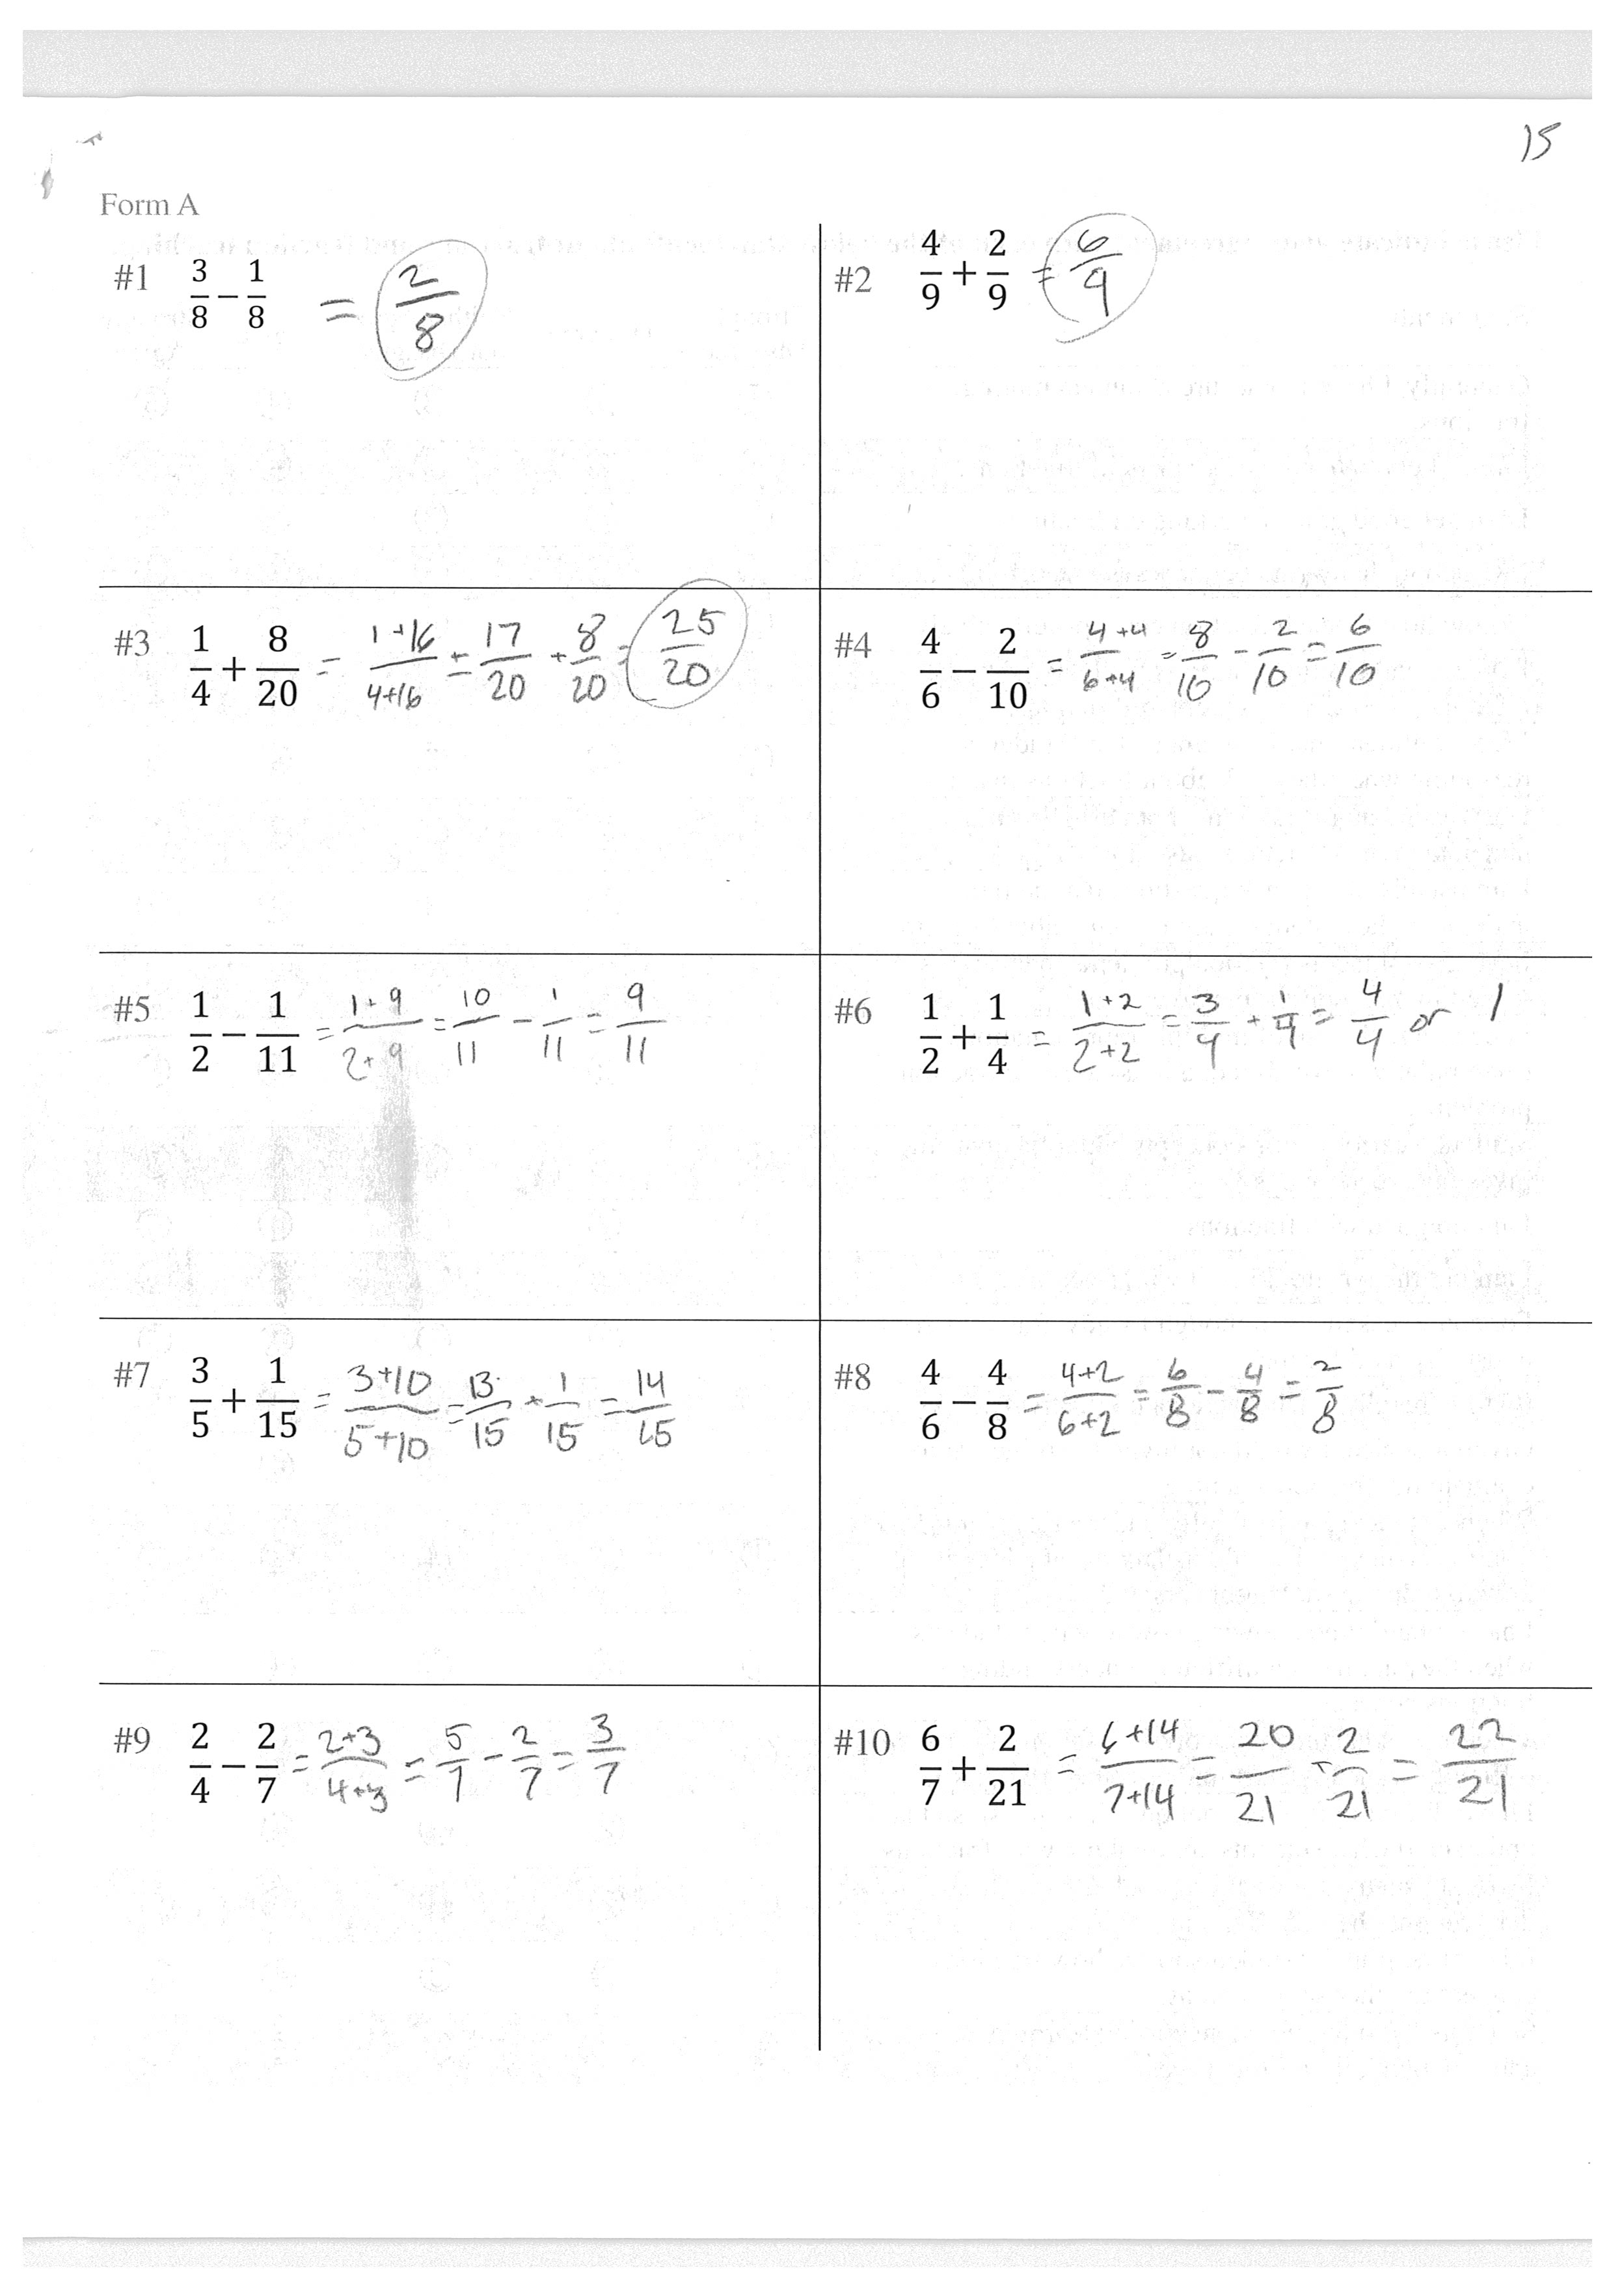 15
Form A
#1 3/8 − 1/8 = 2/8
#2 4/9 + 2/9 = 6/9
#3 1/4 + 8/20 = 1+16/4+16 = 17/20 + 8/20 = 25/20
#4 4/6 − 2/10 = 4+4/6+4 = 8/10 − 2/10 = 6/10
#5 1/2 − 1/11 = 1+9/2+9 = 10/11 − 1/11 = 9/11
#6 1/2 + 1/4 = 1+2/2+2 = 3/4 + 1/4 = 4/4 or 1
#7 3/5 + 1/15 = 3+10/5+10 = 13/15 + 1/15 = 14/15
#8 4/6 − 4/8 = 4+2/6+2 = 6/8 − 4/8 = 2/8
#9 2/4 − 2/7 = 2+3/4+3 = 5/7 − 2/7 = 3/7
#10 6/7 + 2/21 = 6+14/7+14 = 20/21 + 2/21 = 22/21